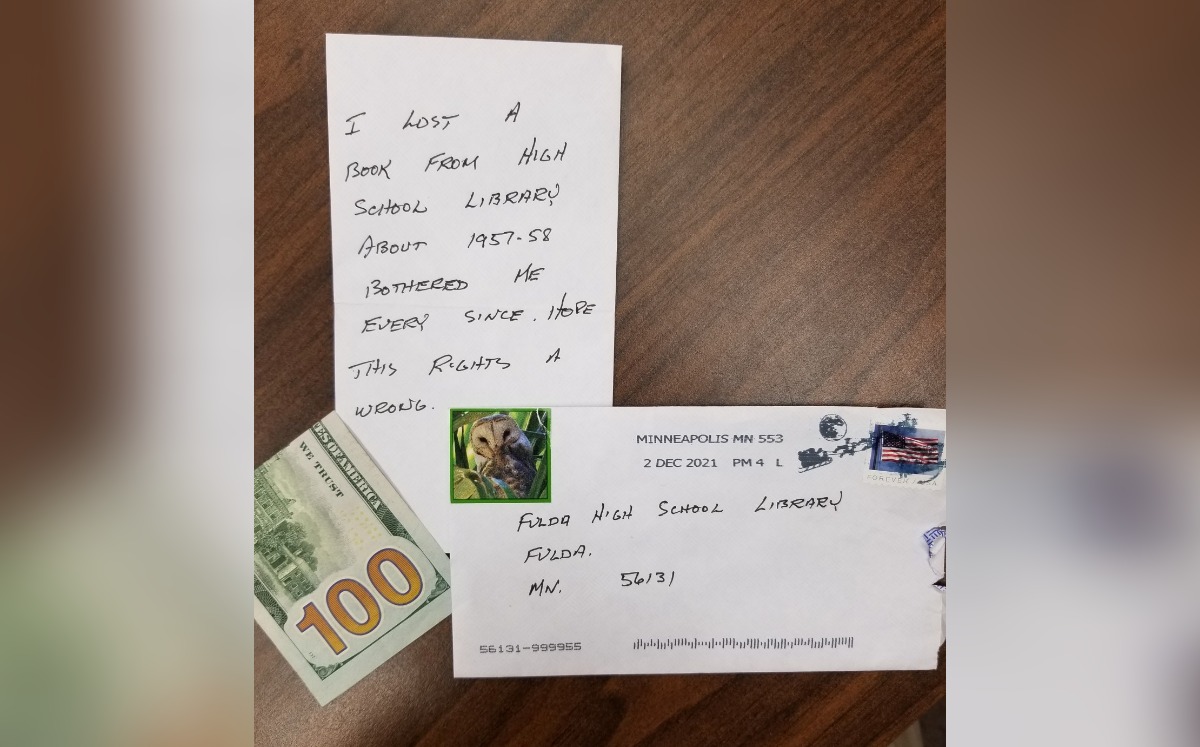 I LOST A
BOOK FROM HIGH
SCHOOL LIBRARY
ABOUT 1957-58
BOTHERED ME
EVERY SINCE. HOPE
THIS RIGHTS A
WRONG.
ES OF AMERICA
WE TRUST
100
MINNEAPOLIS MN 553
2 DEC 2021 PM 4 L
FOREVER
FULDA HIGH SCHOOL LIBRARY
FULDA.
MN. 56131
56131-999955